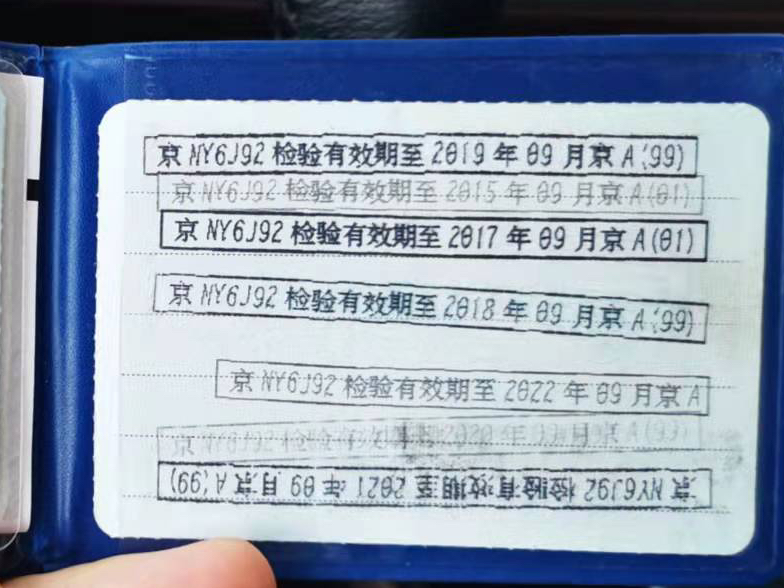 京 NY6J92 检验有效期至 2019 年 09 月京 A(99)
京 NY6J92 检验有效期至 2015 年 09 月京 A(01)
京 NY6J92 检验有效期至 2017 年 09 月京 A(01)
京 NY6J92 检验有效期至 2018 年 09 月京 A(99)
京 NY6J92 检验有效期至 2022 年 09 月京 A
京 NY6J92 检验有效期至 2020 年 09 月京 A(99)
京 NY6J92 检验有效期至 2021 年 09 月京 A(99)